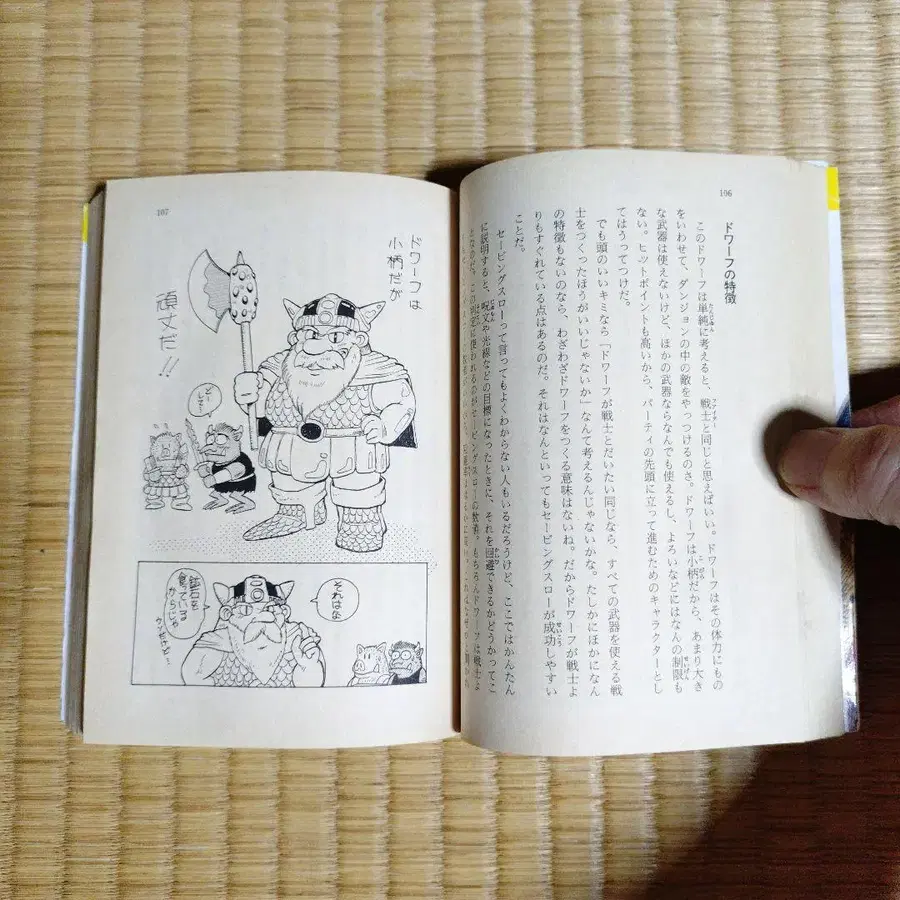 106
ドワーフの特徴
このドワーフは単純に考えると、戦士と同じと思えばいい。ドワーフはその体力にもの
をいわせて、ダンジョンの中の敵をやっつけるのさ。ドワーフは小柄だから、あまり大き
な武器は使えないけど、ほかの武器ならなんでも使えるし、よろいなどにはなんの制限も
ない。ヒットポイントも高いから、パーティの先頭に立って進むためのキャラクターとし
てはうってつけだ。
でも頭のいいキミなら「ドワーフが戦士とだいたい同じなら、すべての武器を使える戦
士をつくったほうがいいじゃないか」なんて考えるんじゃないかな。たしかにほかになん
の特徴もないのなら、わざわざドワーフをつくる意味はないね。だからドワーフが戦士よ
りもすぐれている点はあるのだ。それはなんといってもセービングスローが成功しやすい
ことだ。
セービングスローって言ってもよくわからない人もいるだろうけど、ここではかんたん
に説明すると、呪文や光線などの目標になったときに、それを回避できるかどうかってこ
となのだ。この判定に使われるのがセービングスローの数値。もちろんドワーフは戦士よ
107
ドワーフは
小柄だが
頑丈だ!!
どうして?
それはな
鉱石を
食っている
からじゃ
ウソだと…